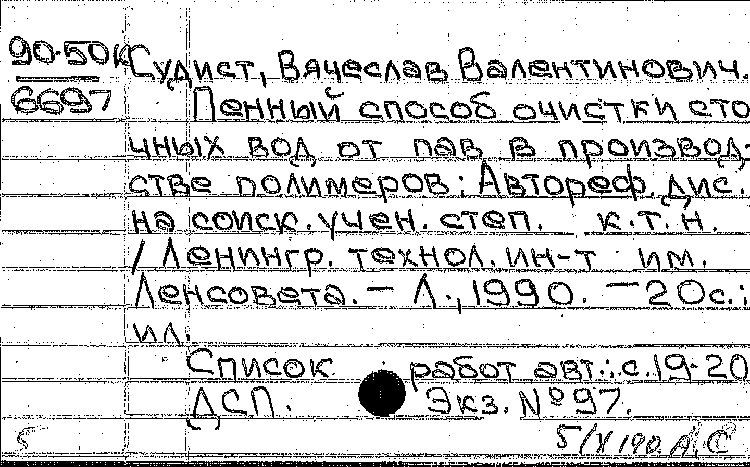 90-50к Судист, Вячеслав Валентинович.
6697 Пенный способ очистки сто
чных вод от пав в производ-
стве полимеров: Автореф. дис.
на соиск. учен. степ. к.т.н.
/ Ленингр. технол. ин-т им.
Ленсовета. - Л., 1990. - 20с.:
ил.
Список работ авт.: с.19-20
ДСП. Экз. №97.
5 5/X 190 А.С